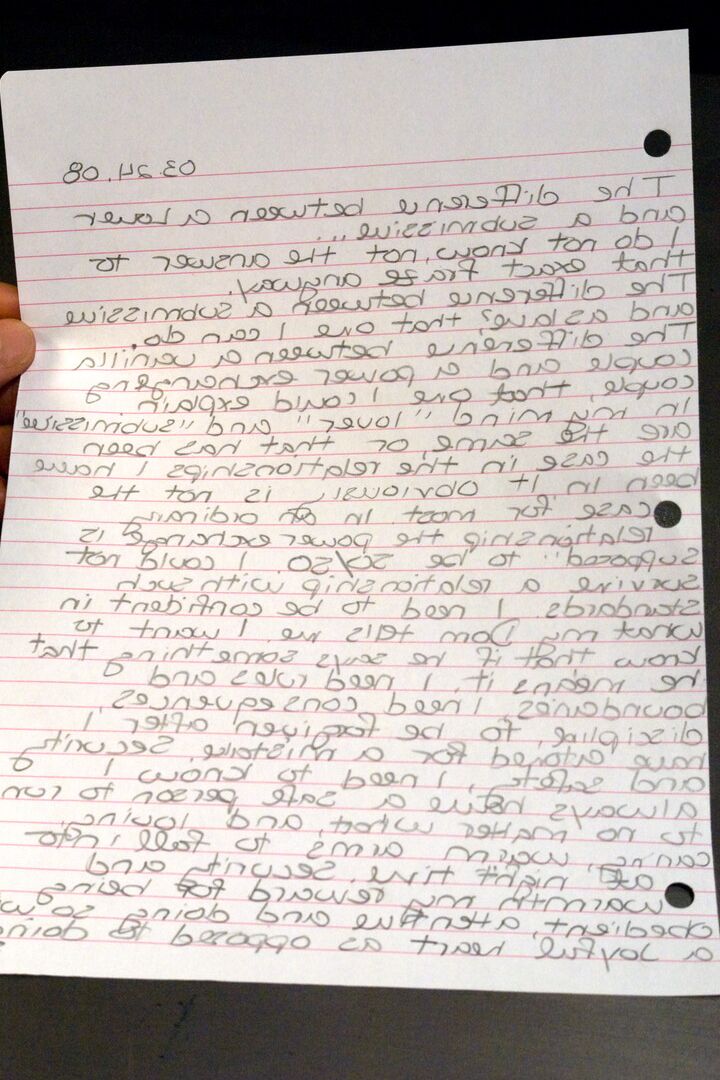 03.24.08
The difference between a lover
and a submissive...
I do not know, not the answer to
that exact frase anyway.
The difference between a submissive
and a slave? that one I can do.
The difference between a vanilla
couple and a power exchanging
couple, that one I could explain
In my mind "lover" and "submissive"
are the same, or that has been
the case in the relationships I have
been in. It obviously is not the
case for most. In ordinary
relationship the power exchange is
supposed" to be 50/50. I could not
survive a relationship with such
standards. I need to be confident in
what my Dom tells me. I want to
know that if he says something that
he means it. I need rules and
boundaries, I need consequences,
discipline, to be forgiven after I
have atoned for a mistake. Security
and safety, I need to know I
always have a safe person to run
to no matter what, and loving,
caring, warm arms to fall into
at night time. Security and
warmth my reward for being
obedient, attentive and doing so
a joyful heart as opposed to doing